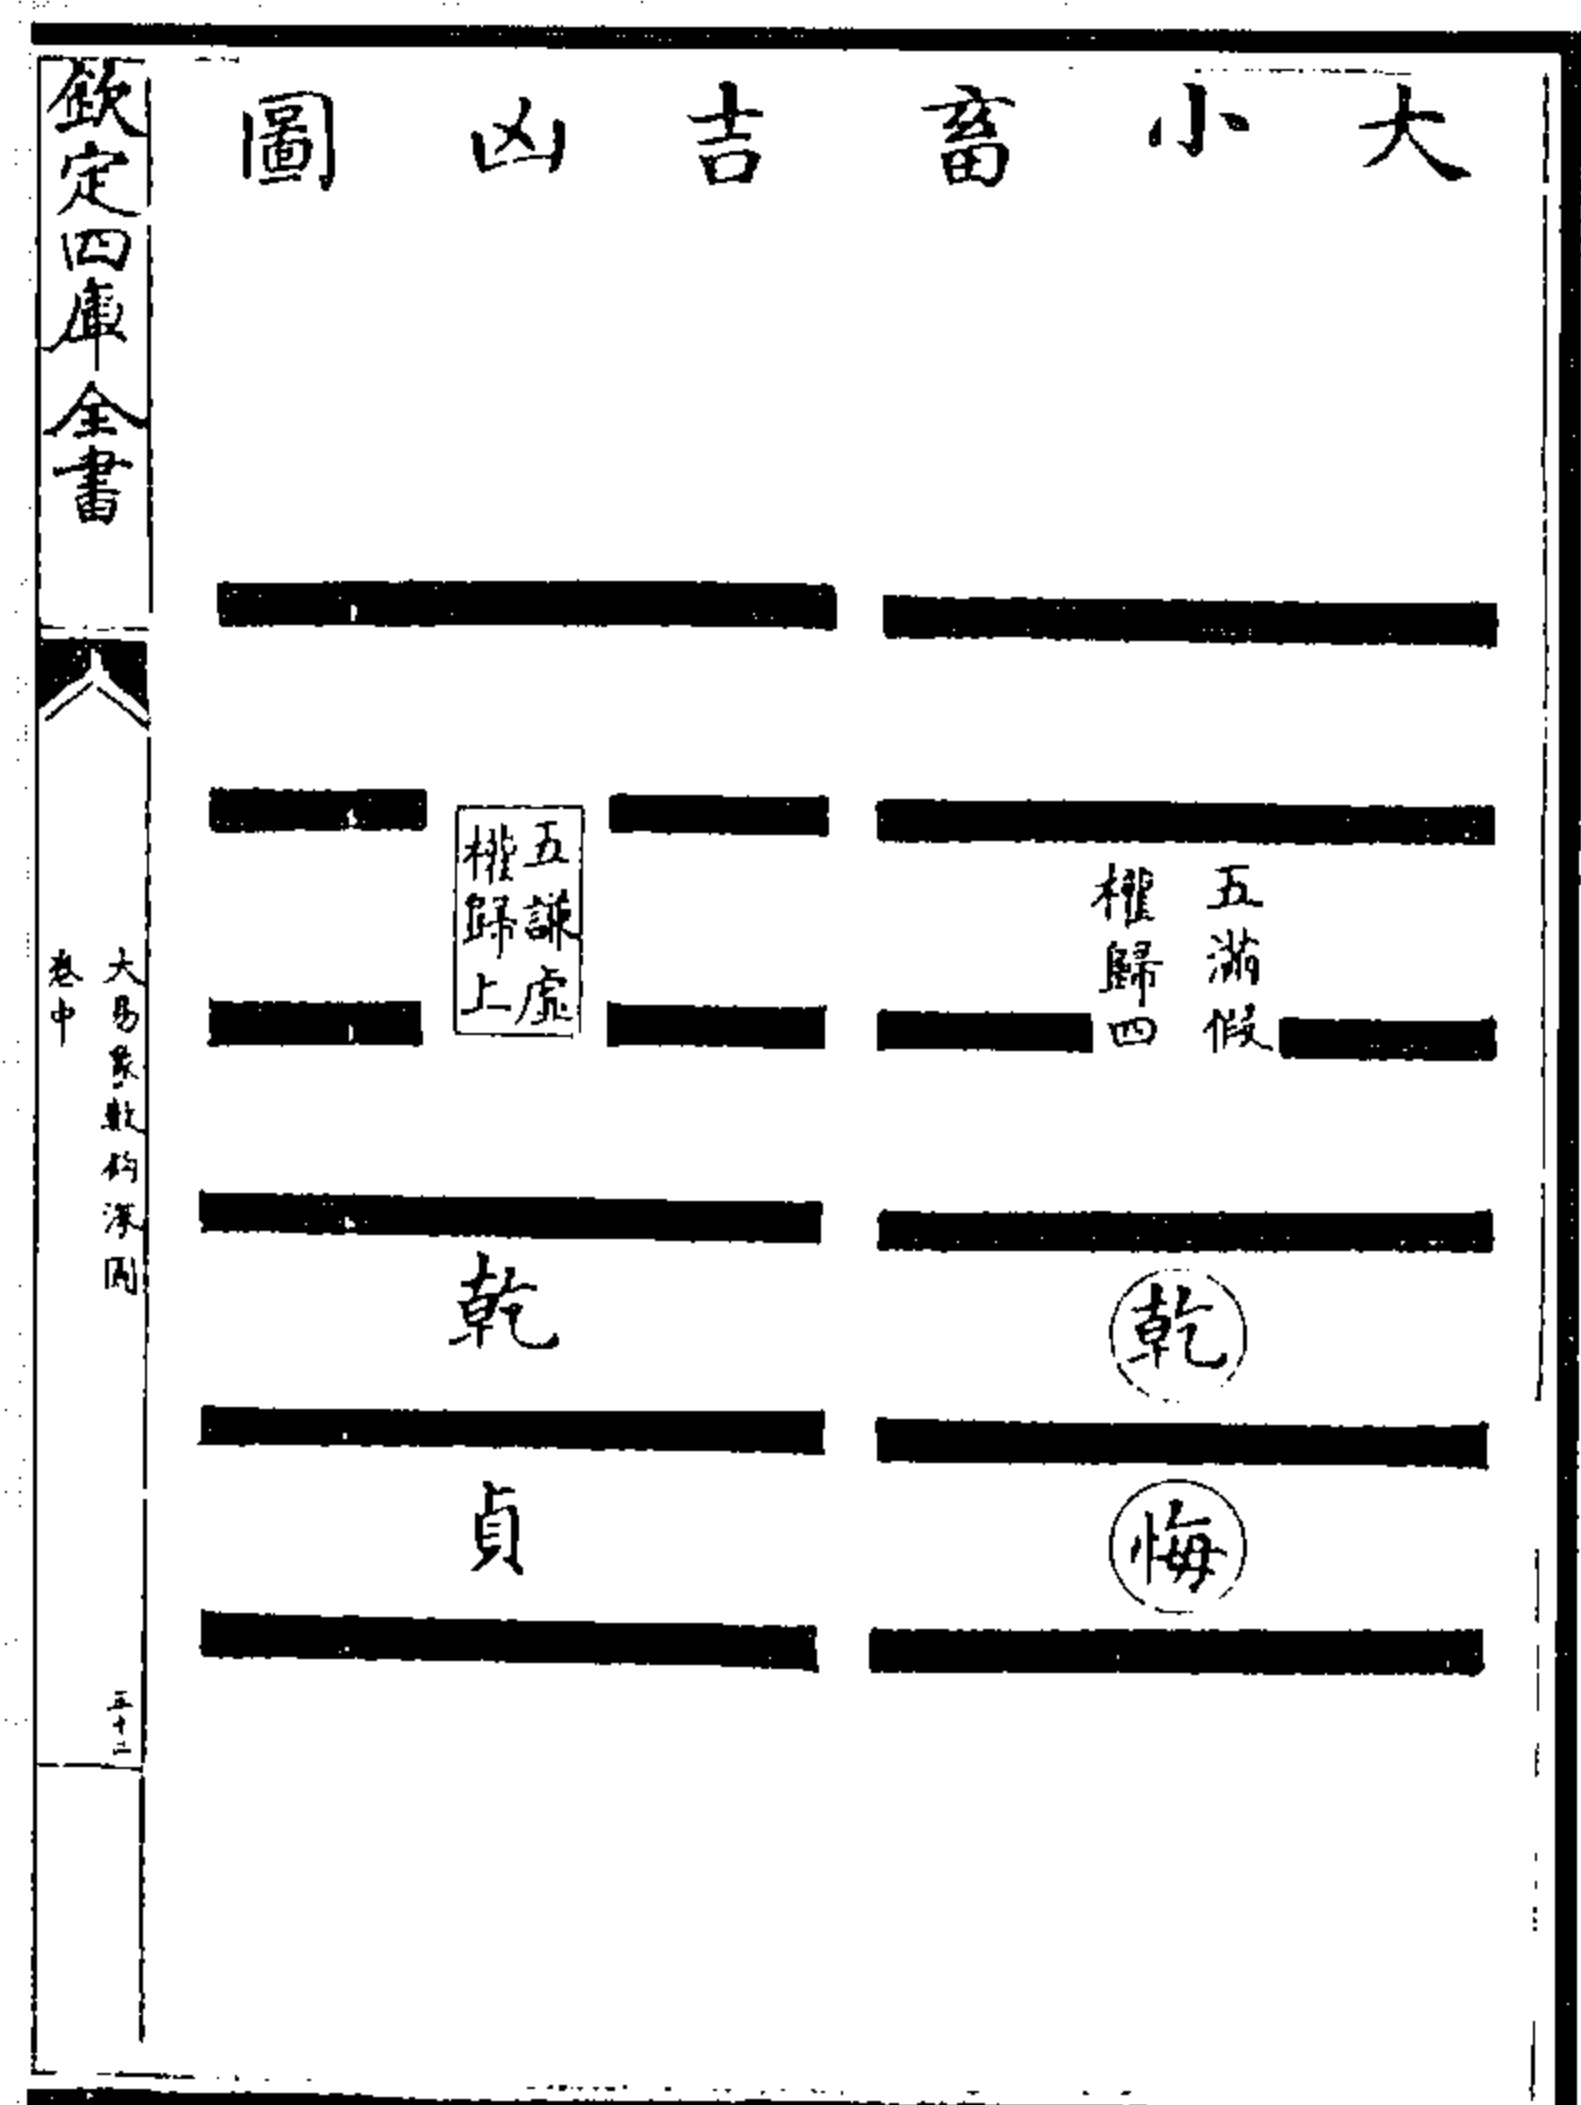 大小畜吉凶圖
五滿假
權歸四
乾
悔
五謙虛
權歸上
乾
貞
欽定四庫全書
大易象數鈎深圖
卷中